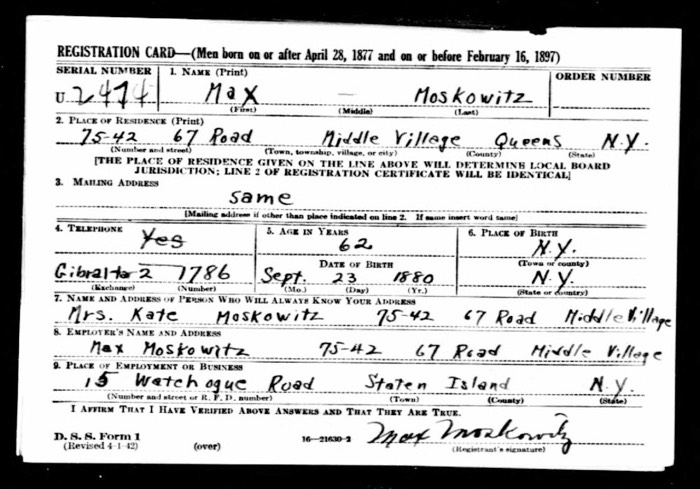 REGISTRATION CARD—(Men born on or after April 28, 1877 and on or before February 16, 1897)
SERIAL NUMBER 1. NAME (Print) ORDER NUMBER
U 2474 Max — Moskowitz
(First) (Middle) (Last)
2. PLACE OF RESIDENCE (Print)
75-42 67 Road Middle Village Queens N.Y.
(Number and street) (Town, township, village, or city) (County) (State)
[THE PLACE OF RESIDENCE GIVEN ON THE LINE ABOVE WILL DETERMINE LOCAL BOARD
JURISDICTION; LINE 2 OF REGISTRATION CERTIFICATE WILL BE IDENTICAL]
3. MAILING ADDRESS
Same
[Mailing address if other than place indicated on line 2. If same insert word same]
4. TELEPHONE 5. AGE IN YEARS 6. PLACE OF BIRTH
Yes 62 N.Y.
DATE OF BIRTH (Town or county)
Gibraltar 2 1786 Sept. 23 1880 N.Y.
(Exchange) (Number) (Mo.) (Day) (Yr.) (State or country)
7. NAME AND ADDRESS OF PERSON WHO WILL ALWAYS KNOW YOUR ADDRESS
Mrs. Kate Moskowitz 75-42 67 Road Middle Village
8. EMPLOYER'S NAME AND ADDRESS
Max Moskowitz 75-42 67 Road Middle Village
9. PLACE OF EMPLOYMENT OR BUSINESS
15 Watchogue Road Staten Island N.Y.
(Number and street or R. F. D. number) (Town) (County) (State)
I AFFIRM THAT I HAVE VERIFIED ABOVE ANSWERS AND THAT THEY ARE TRUE.
D. S. S. Form 1
(Revised 4-1-42) (over) 16—21630-2 Max Moskowitz
(Registrant's signature)